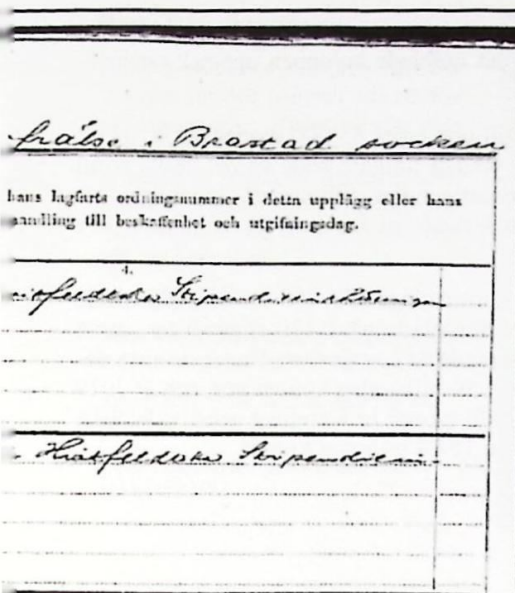 frälse i Brastad socken
hans lagfarts ordningsnummer i detta upplägg eller hans
handling till beskaffenhet och utgifningsdag.
4.
Stipendieinrättning
Hvitfeldtska Stipendiein-